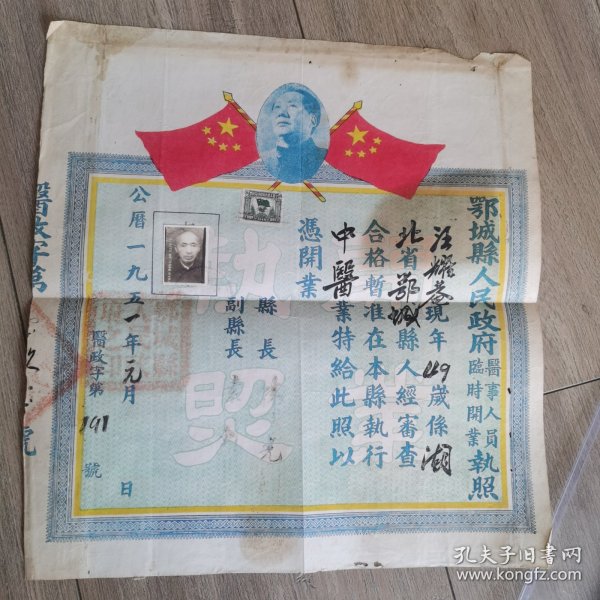 鄂城縣人民政府醫事人員臨時開業執照
汪耀蒼現年49歲係湖
北省鄂城縣人經審查
合格暫准在本縣執行
中醫業特給此照以
憑開業
縣長
副縣長
公曆一九五一年元月 日
醫政字第191號
執照
醫政字第 號
孔夫子旧书网
www.kongfz.com